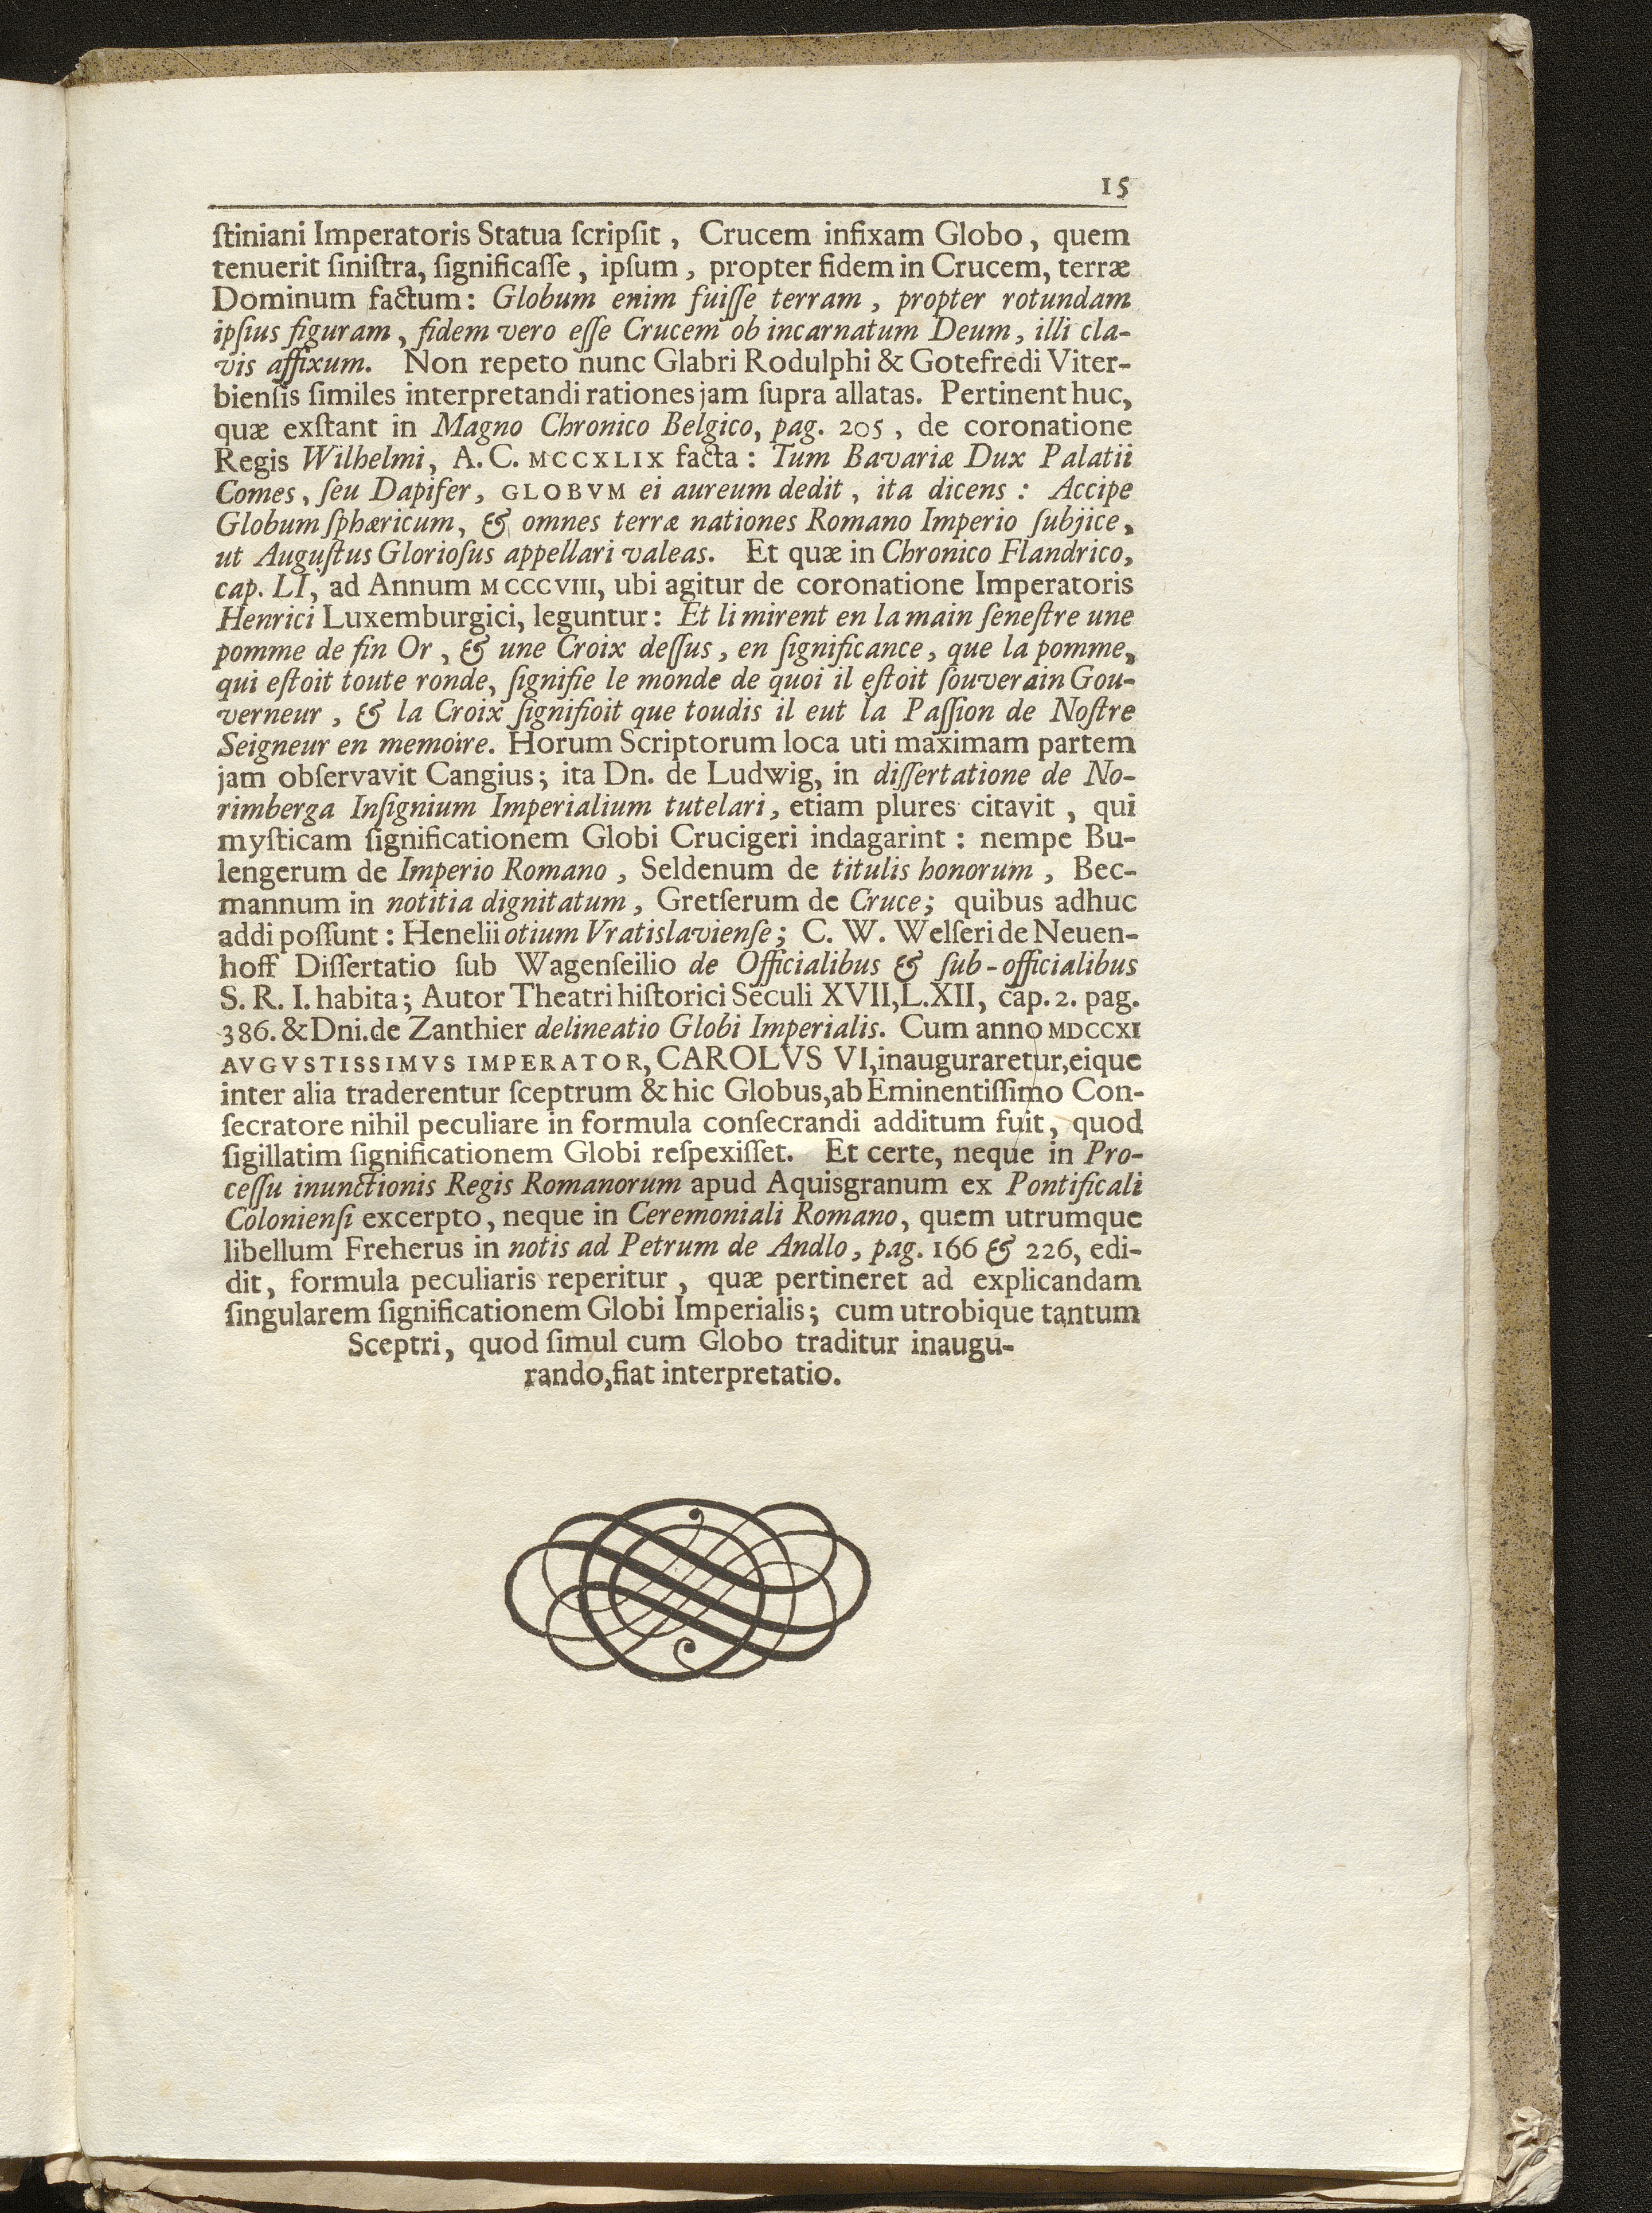 15
ſtiniani Imperatoris Statua ſcripſit, Crucem infixam Globo, quem
tenuerit ſiniſtra, ſignificaſſe, ipſum, propter fidem in Crucem, terræ
Dominum factum: Globum enim fuiſſe terram, propter rotundam
ipſius figuram, fidem vero eſſe Crucem ob incarnatum Deum, illi cla-
vis affixum. Non repeto nunc Glabri Rodulphi & Gotefredi Viter-
bienſis ſimiles interpretandi rationes jam ſupra allatas. Pertinent huc,
quæ exſtant in Magno Chronico Belgico, pag. 205, de coronatione
Regis Wilhelmi, A. C. MCCXLIX facta: Tum Bavariæ Dux Palatii
Comes, ſeu Dapifer, GLOBVM ei aureum dedit, ita dicens: Accipe
Globum ſphæricum, & omnes terræ nationes Romano Imperio ſubjice,
ut Auguſtus Glorioſus appellari valeas. Et quæ in Chronico Flandrico,
cap. LI, ad Annum MCCCVIII, ubi agitur de coronatione Imperatoris
Henrici Luxemburgici, leguntur: Et li mirent en la main ſeneſtre une
pomme de fin Or, & une Croix deſſus, en ſignificance, que la pomme,
qui eſtoit toute ronde, ſignifie le monde de quoi il eſtoit ſouverain Gou-
verneur, & la Croix ſignifioit que toudis il eut la Paſſion de Noſtre
Seigneur en memoire. Horum Scriptorum loca uti maximam partem
jam obſervavit Cangius; ita Dn. de Ludwig, in diſſertatione de No-
rimberga Inſignium Imperialium tutelari, etiam plures citavit, qui
myſticam ſignificationem Globi Crucigeri indagarint: nempe Bu-
lengerum de Imperio Romano, Seldenum de titulis honorum, Bec-
mannum in notitia dignitatum, Gretſerum de Cruce; quibus adhuc
addi poſſunt: Henelii otium Vratislavienſe; C. W. Welſeri de Neuen-
hoff Diſſertatio ſub Wagenſeilio de Officialibus & ſub-officialibus
S. R. I. habita; Autor Theatri hiſtorici Seculi XVII, L. XII, cap. 2. pag.
386. & Dni. de Zanthier delineatio Globi Imperialis. Cum anno MDCCXI
AVGVSTISSIMVS IMPERATOR, CAROLVS VI, inauguraretur, eique
inter alia traderentur ſceptrum & hic Globus, ab Eminentiſſimo Con-
ſecratore nihil peculiare in formula conſecrandi additum fuit, quod
ſigillatim ſignificationem Globi reſpexiſſet. Et certe, neque in Pro-
ceſſu inunctionis Regis Romanorum apud Aquisgranum ex Pontificali
Colonienſi excerpto, neque in Ceremoniali Romano, quem utrumque
libellum Freherus in notis ad Petrum de Andlo, pag. 166 & 226, edi-
dit, formula peculiaris reperitur, quæ pertineret ad explicandam
ſingularem ſignificationem Globi Imperialis; cum utrobique tantum
Sceptri, quod ſimul cum Globo traditur inaugu-
rando, fiat interpretatio.